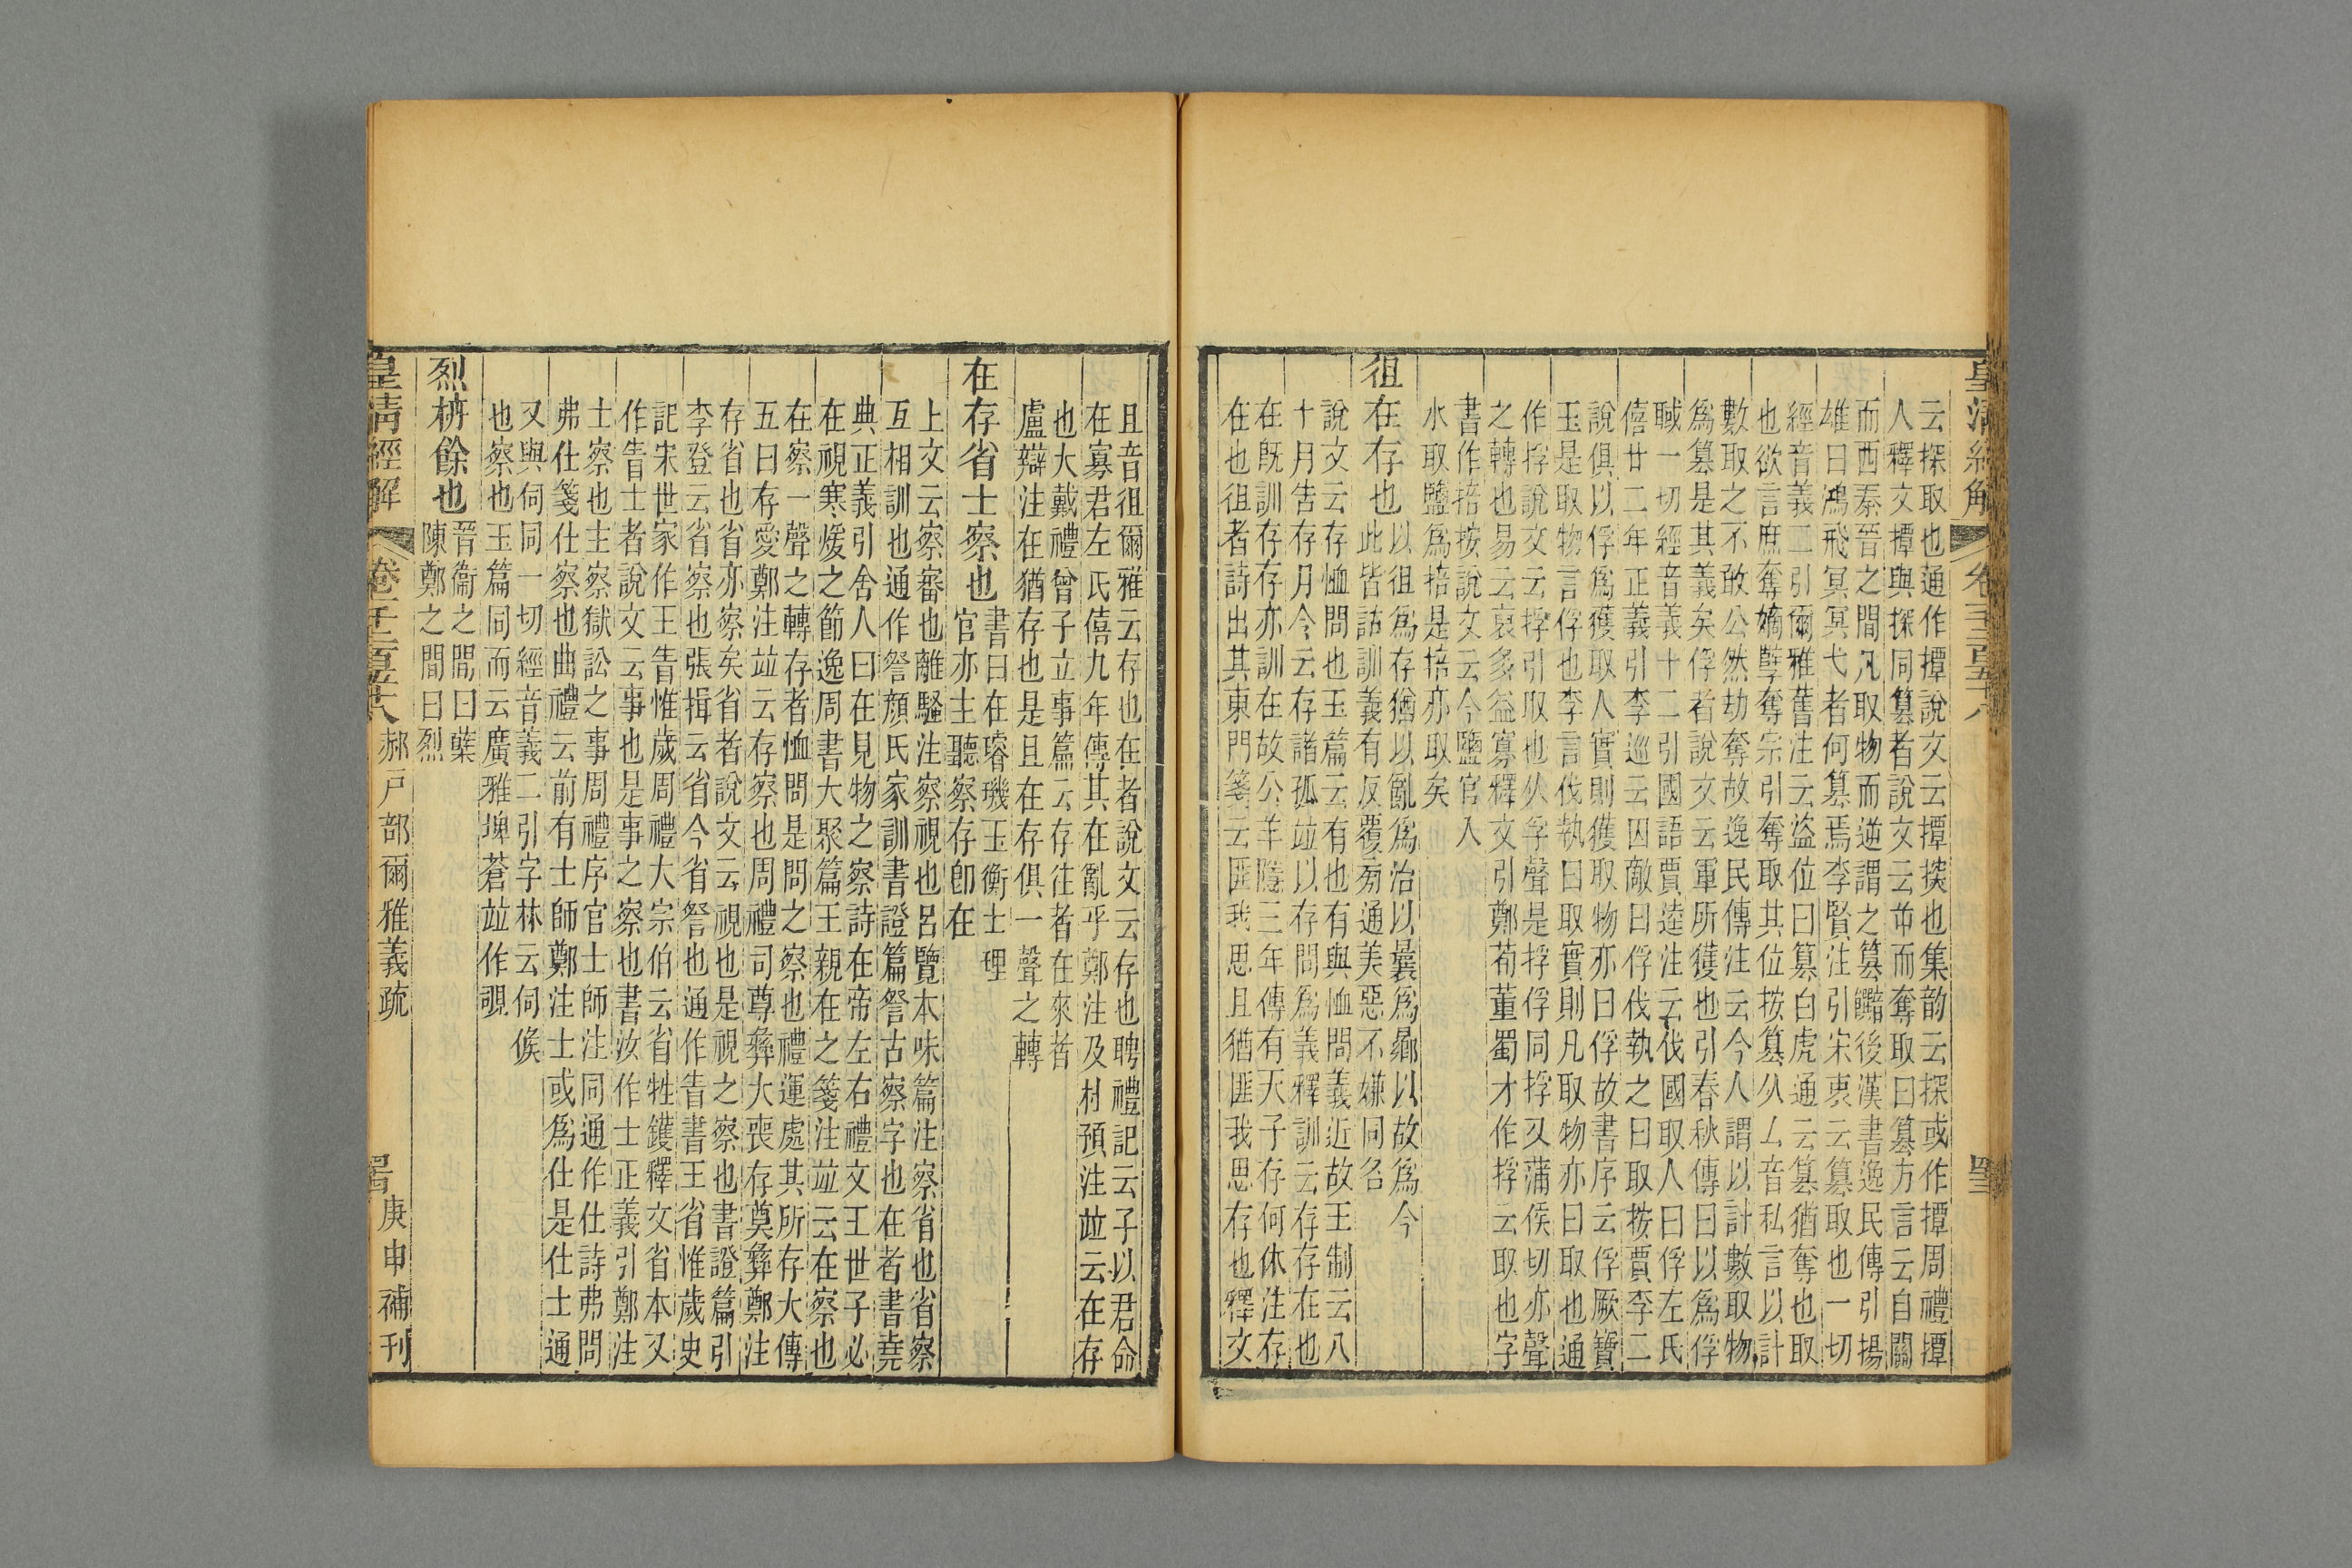 皇清經解 卷一千二百五十八
云探取也通作撢說文云撢探也集韵云探或作撢周禮撢
人釋文撢與探同篡者說文云屰而奪取曰篡方言云自關
而西秦晉之間凡取物而逆謂之篡後漢書逸民傳引揚
雄曰鴻飛冥冥弋者何篡焉李賢注引宋衷云篡取也一切
經音義二引爾雅舊注云盜位曰篡白虎通云篡猶奪也取
也欲言庶奪嫡孽奪宗引奪取其位按篡从厶音私言以計
數取之不敢公然劫奪故逸民傳注云今人謂以計數取物
爲篡是其義矣俘者說文云軍所獲也引春秋傳曰以爲俘
聝一切經音義十二引國語賈逵注云伐國取人曰俘左氏
僖廿二年正義引李巡云囚敵曰俘伐執之曰取按賈李二
說俱以俘爲獲取人實則獲取物亦曰俘故書序云俘厥寶
玉是取物言俘也李言伐執曰取實則凡取物亦曰取也通
作捋說文云捋引取也从孚聲是捋俘同捋又蒲侯切亦聲
之轉也易云裒多益寡釋文引鄭荀董蜀才作捋云取也字
書作掊按說文云今鹽官入
水取鹽爲掊是掊亦取矣
徂在存也
以徂爲存猶以亂爲治以曩爲曏以故爲今
此皆詁訓義有反覆旁通美惡不嫌同名
說文云存恤問也玉篇云有也有與恤問義近故王制云八
十月告存月令云存諸孤竝以存問爲義釋訓云存存在也
在既訓存存亦訓在故公羊隱三年傳有天子存何休注存
在也徂者詩出其東門箋云匪我思且猶匪我思存也釋文
且音徂爾雅云存也在者說文云存也聘禮記云子以君命
在寡君左氏僖九年傳其在亂乎鄭注及杜預注竝云在存
也大戴禮曾子立事篇云存往者在來者
盧辯注在猶存也是且在存俱一聲之轉
在存省士察也
書曰在璿璣玉衡士理
官亦主聽察存卽在
上文云察審也離騷注察視也呂覽本味篇注察省也省察
互相訓也通作詧顏氏家訓書證篇詧古察字也在者書堯
典正義引舍人曰在見物之察詩在帝左右禮文王世子必
在視寒煖之節逸周書大聚篇王親在之箋注竝云在察也
在察一聲之轉存者恤問是問之察也禮運處其所存大傳
五曰存愛鄭注竝云存察也周禮司尊彝大喪存奠彝鄭注
存省也省亦察矣省者說文云視也是視之察也書證篇引
李登云省察也張揖云省今省詧也通作眚書王省惟歲史
記宋世家作王眚惟歲周禮大宗伯云省牲鑊釋文省本又
作眚士者說文云事也是事之察也書汝作士正義引鄭注
士察也主察獄訟之事周禮序官士師注同通作仕詩弗問
弗仕箋仕察也曲禮云前有士師鄭注士或爲仕是仕士通
又與伺同一切經音義二引字林云伺候
也察也玉篇同而云廣雅埤蒼竝作覗
烈枿餘也
晉衞之間曰櫱
陳鄭之間曰烈
皇清經解 卷一千二百五十八 郝戶部爾雅義疏 庚申補刊